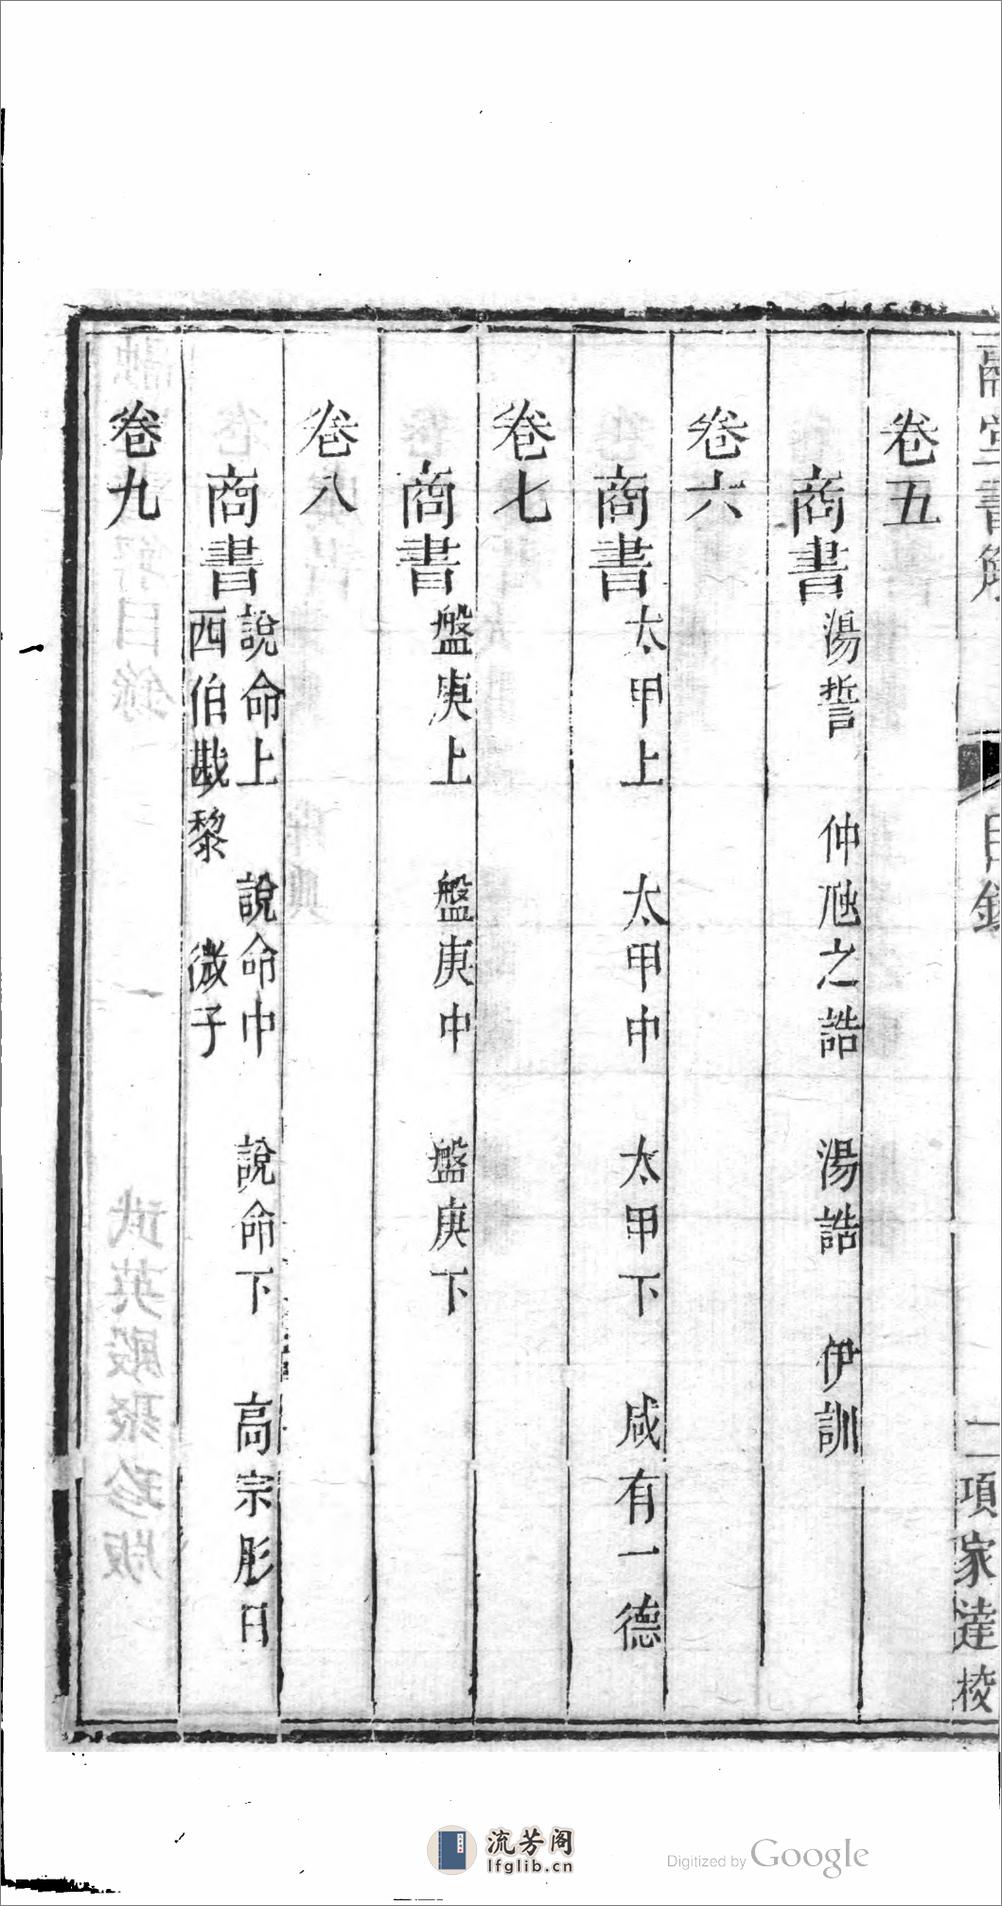 融堂書解
目錄
二
項家達校
卷五
商書 湯誓 仲虺之誥 湯誥 伊訓
卷六
商書 太甲上 太甲中 太甲下 咸有一德
卷七
商書 盤庚上 盤庚中 盤庚下
卷八
商書 說命上 說命中 說命下 高宗肜日
西伯戡黎 微子
卷九
流芳阁
lfglib.cn
Digitized by Google